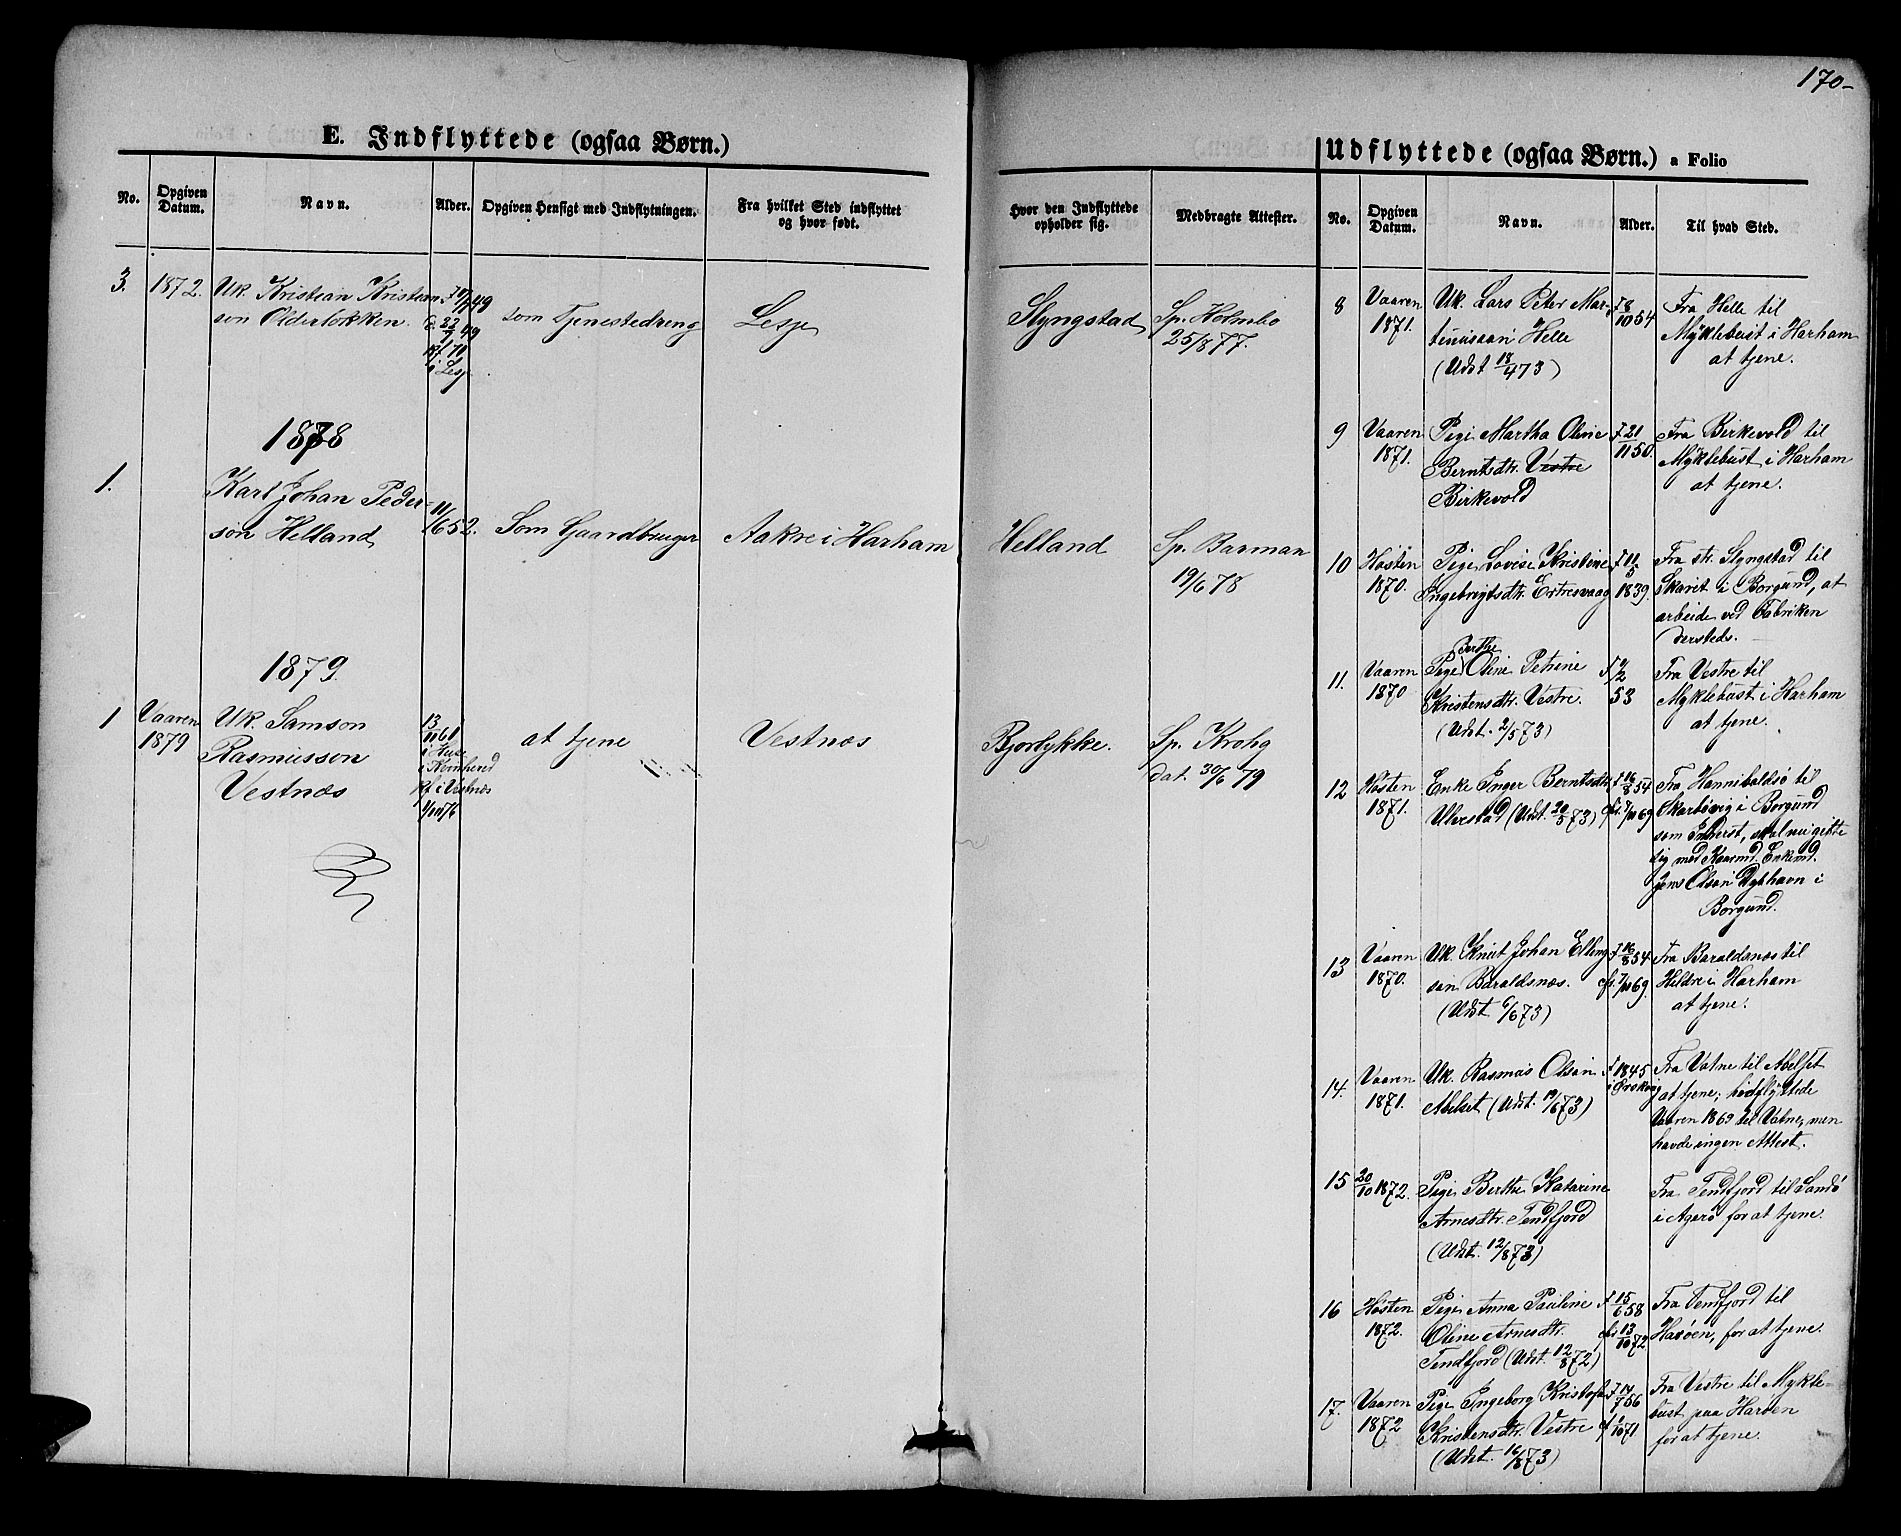 170-
E. Indflyttede (ogsaa Børn.)
No.
Opgiven Datum.
Navn.
Alder.
Opgiven Hensigt med Indflytningen.
Fra hvilket Sted indflyttet og hvor født.
Hvor den Indflyttede opholder sig.
Medbragte Attester.
3. 1872. Uk. Kristian Kristian-
sen Olderløkken.
i Lesje
som Tjenestedreng
Lesje
Slyngstad
Sp. Holmbo
25/8 77.
1878
1.
Karl Johan Peder-
sön Helland
11/1652.
Som Gaardbruger
Aakre i Harham
Helland
Sp. Barman
19/6 78
1879.
1 Vaaren
1879
Uk. Samson
Rasmusson
Vestnæs
13/11 61
i Vestnæs
at tjene
Vestnæs
Bjorlykke.
Sp. Krohg
dat. 30/6 79
Udflyttede (ogsaa Børn.) a Folio
No.
Opgiven Datum.
Navn.
Alder.
Til hvad Sted.
8 Vaaren
1871.
Uk. Lars Peter Mar-
tinussøn Helle
(Udst 18/4 73)
f 8/10 54
Fra Helle til
Myklebust i Harham
at tjene.
9 Vaaren
1871.
Pige Martha Oline
Berntsdtr. Vestre
Birkevold
f 21/11 50.
Fra Birkevold til
Myklebust i Harham
at tjene.
10 Høsten
1870.
Pige Lovise Kristine
Ingebrigtsdtr. Ertresvaag
f 11/5
1839.
Fra str. Slyngstad til
Skaret i Borgund, at
arbeide ved Fabriken
dersteds.
11. Vaaren
1870
Berthe
Pige Oline Petrine
Kristensdtr. Vestre.
(Udst. 2/5 73)
53
Fra Vestre til
Myklebust i Harham
at tjene.
12 Høsten
1871.
Enke Inger Berntsdtr
Ulvestad (Udst. 20/5 73)
f 16/8 54
cfr. 7/11 69
Fra Hannibaldsø til
Skarbøvig i Borgund
som Inderst, skal nu gifte
sig med Kaarmd. Enkemd.
Jens Olsøn Dybhavn i
Borgund.
13 Vaaren
1870.
Uk. Knut Johan Elling-
søn Baraldsnæs.
(Udst 6/6 73)
f 16/8 54
cfr. 7/11 69.
Fra Baraldsnæs til
Hildre i Harham
at tjene.
14. Vaaren
1871.
Uk. Rasmus Olsøn
Abelset (Udst. 19/6 73)
f 1845
i Ørskog
Fra Vatne til Abelset
at tjene; hidflyttede
Vaaren 1869 til Vatne, men
havde ingen Attest.
15 20/10 1872.
Pige Berthe Katarine
Arnesdtr. Tendfjord
(Udst. 12/8 73)
Fra Tendfjord til Sandö
i Agerø for at tjene.
16 Høsten
1872.
Pige Anna Pauline
Oline Arnesdtr.
Tendfjord (Udst. 12/8 72)
f 15/6 58
cfr 13/10 72
Fra Tendfjord til
Harøen, for at tjene.
17. Vaaren
1872
Pige Ingeborg
Kristensdtr. Vestre
(Udst. 16/8 73)
f 14/7 56
cf 1/10 71
Fra Vestre til Mykle-
bust paa Harøen
for at tjene.